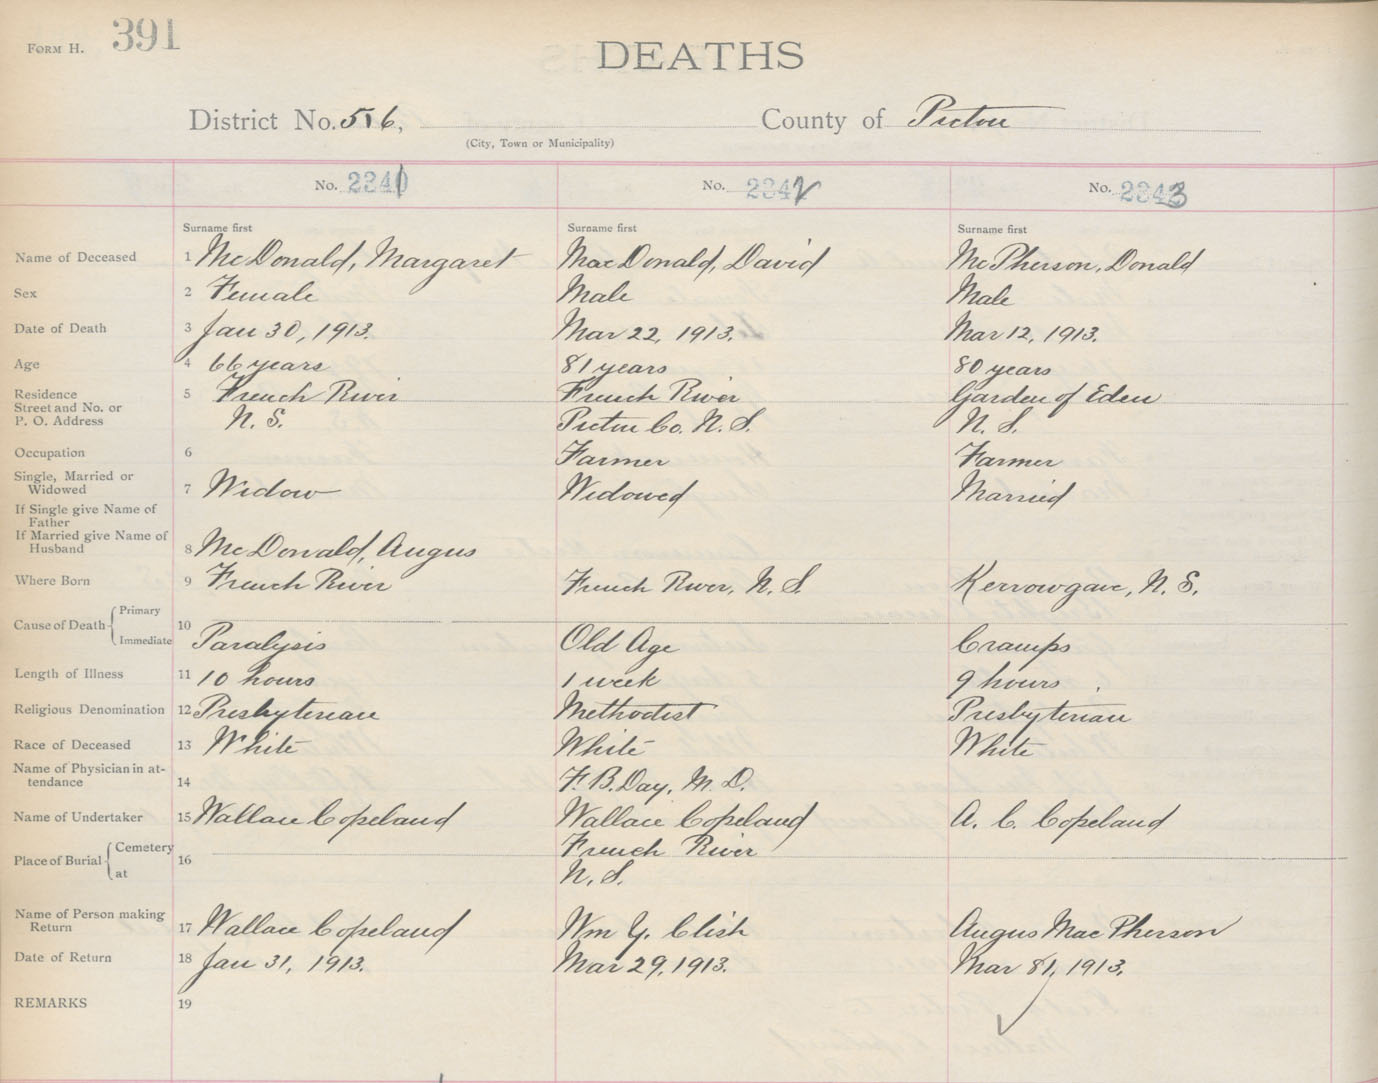 FORM H. 391
DEATHS
District No. 516, County of Pictou
(City, Town or Municipality)
No. 2341 No. 2342 No. 2343
Surname first Surname first Surname first
Name of Deceased 1 McDonald, Margaret MacDonald, David McPherson, Donald
Sex 2 Female Male Male
Date of Death 3 Jan 30, 1913. Mar 22, 1913. Mar 12, 1913.
Age 4 66 years 81 years 80 years
Residence 5 French River French River Garden of Eden
Street and No. or
P. O. Address N. S. Pictou Co. N. S. N. S.
Occupation 6 Farmer Farmer
Single, Married or
Widowed 7 Widow Widowed Married
If Single give Name of
Father
If Married give Name of
Husband 8 McDonald, Angus
Where Born 9 French River French River, N. S. Kerrowgare, N. S.
Cause of Death Primary 10
Immediate Paralysis Old Age Cramps
Length of Illness 11 10 hours 1 week 9 hours
Religious Denomination 12 Presbyterian Methodist Presbyterian
Race of Deceased 13 White White White
Name of Physician in at-
tendance 14 F. B. Day, M. D.
Name of Undertaker 15 Wallace Copeland Wallace Copeland A. C. Copeland
Place of Burial Cemetery 16 French River
at N. S.
Name of Person making
Return 17 Wallace Copeland Wm Y. Clish Angus MacPherson
Date of Return 18 Jan 31, 1913. Mar 29, 1913. Mar 31, 1913.
REMARKS 19